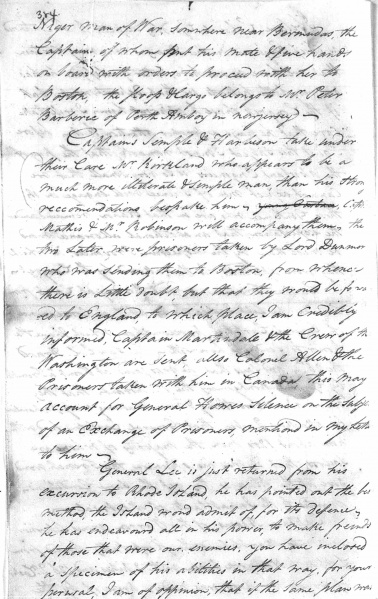 354
Niger Man of War, somwhere near Bermudas, the
Captain of whom put his mate & five hands
on board with orders to proceed with her to
Boston the sloop & Cargo belongs to Mr. Peter
Barberie of Perth Amboy in new jersey—
Captains Semple & Harrison take under
their Care Mr. Kirkland who appears to be a
much more illiterate & simple man than his stron
reccomendations bespoke him— Capt
Mathis & Mr. Robinson will accompany them, the
two Later were prisoners taken by Lord Dunmor
who was sending them to Boston, from whence
there is Little doubt, but that they would be forwa
ed to England to which place, I am Credibly
informed, Captain Martindale & the Crew of the
Washington are sent, also Colonel Allen & the
Prisoners taken with him in Canada, this may
account for General Howes Silence on the Subje
of an Exchange of Prisoners, mentiond in my Lette
to him—
General Lee is just returned from his
excursion to Rhode Island, he has pointed out the bes
method the Island woud admit of, for its defence,
he has endeavourd all in his power, to make freinds
of those that were our enemies, you have inclosed
a Specimen of his abilities in that way, for your
perusal, I am of oppinion, that if the same plan was